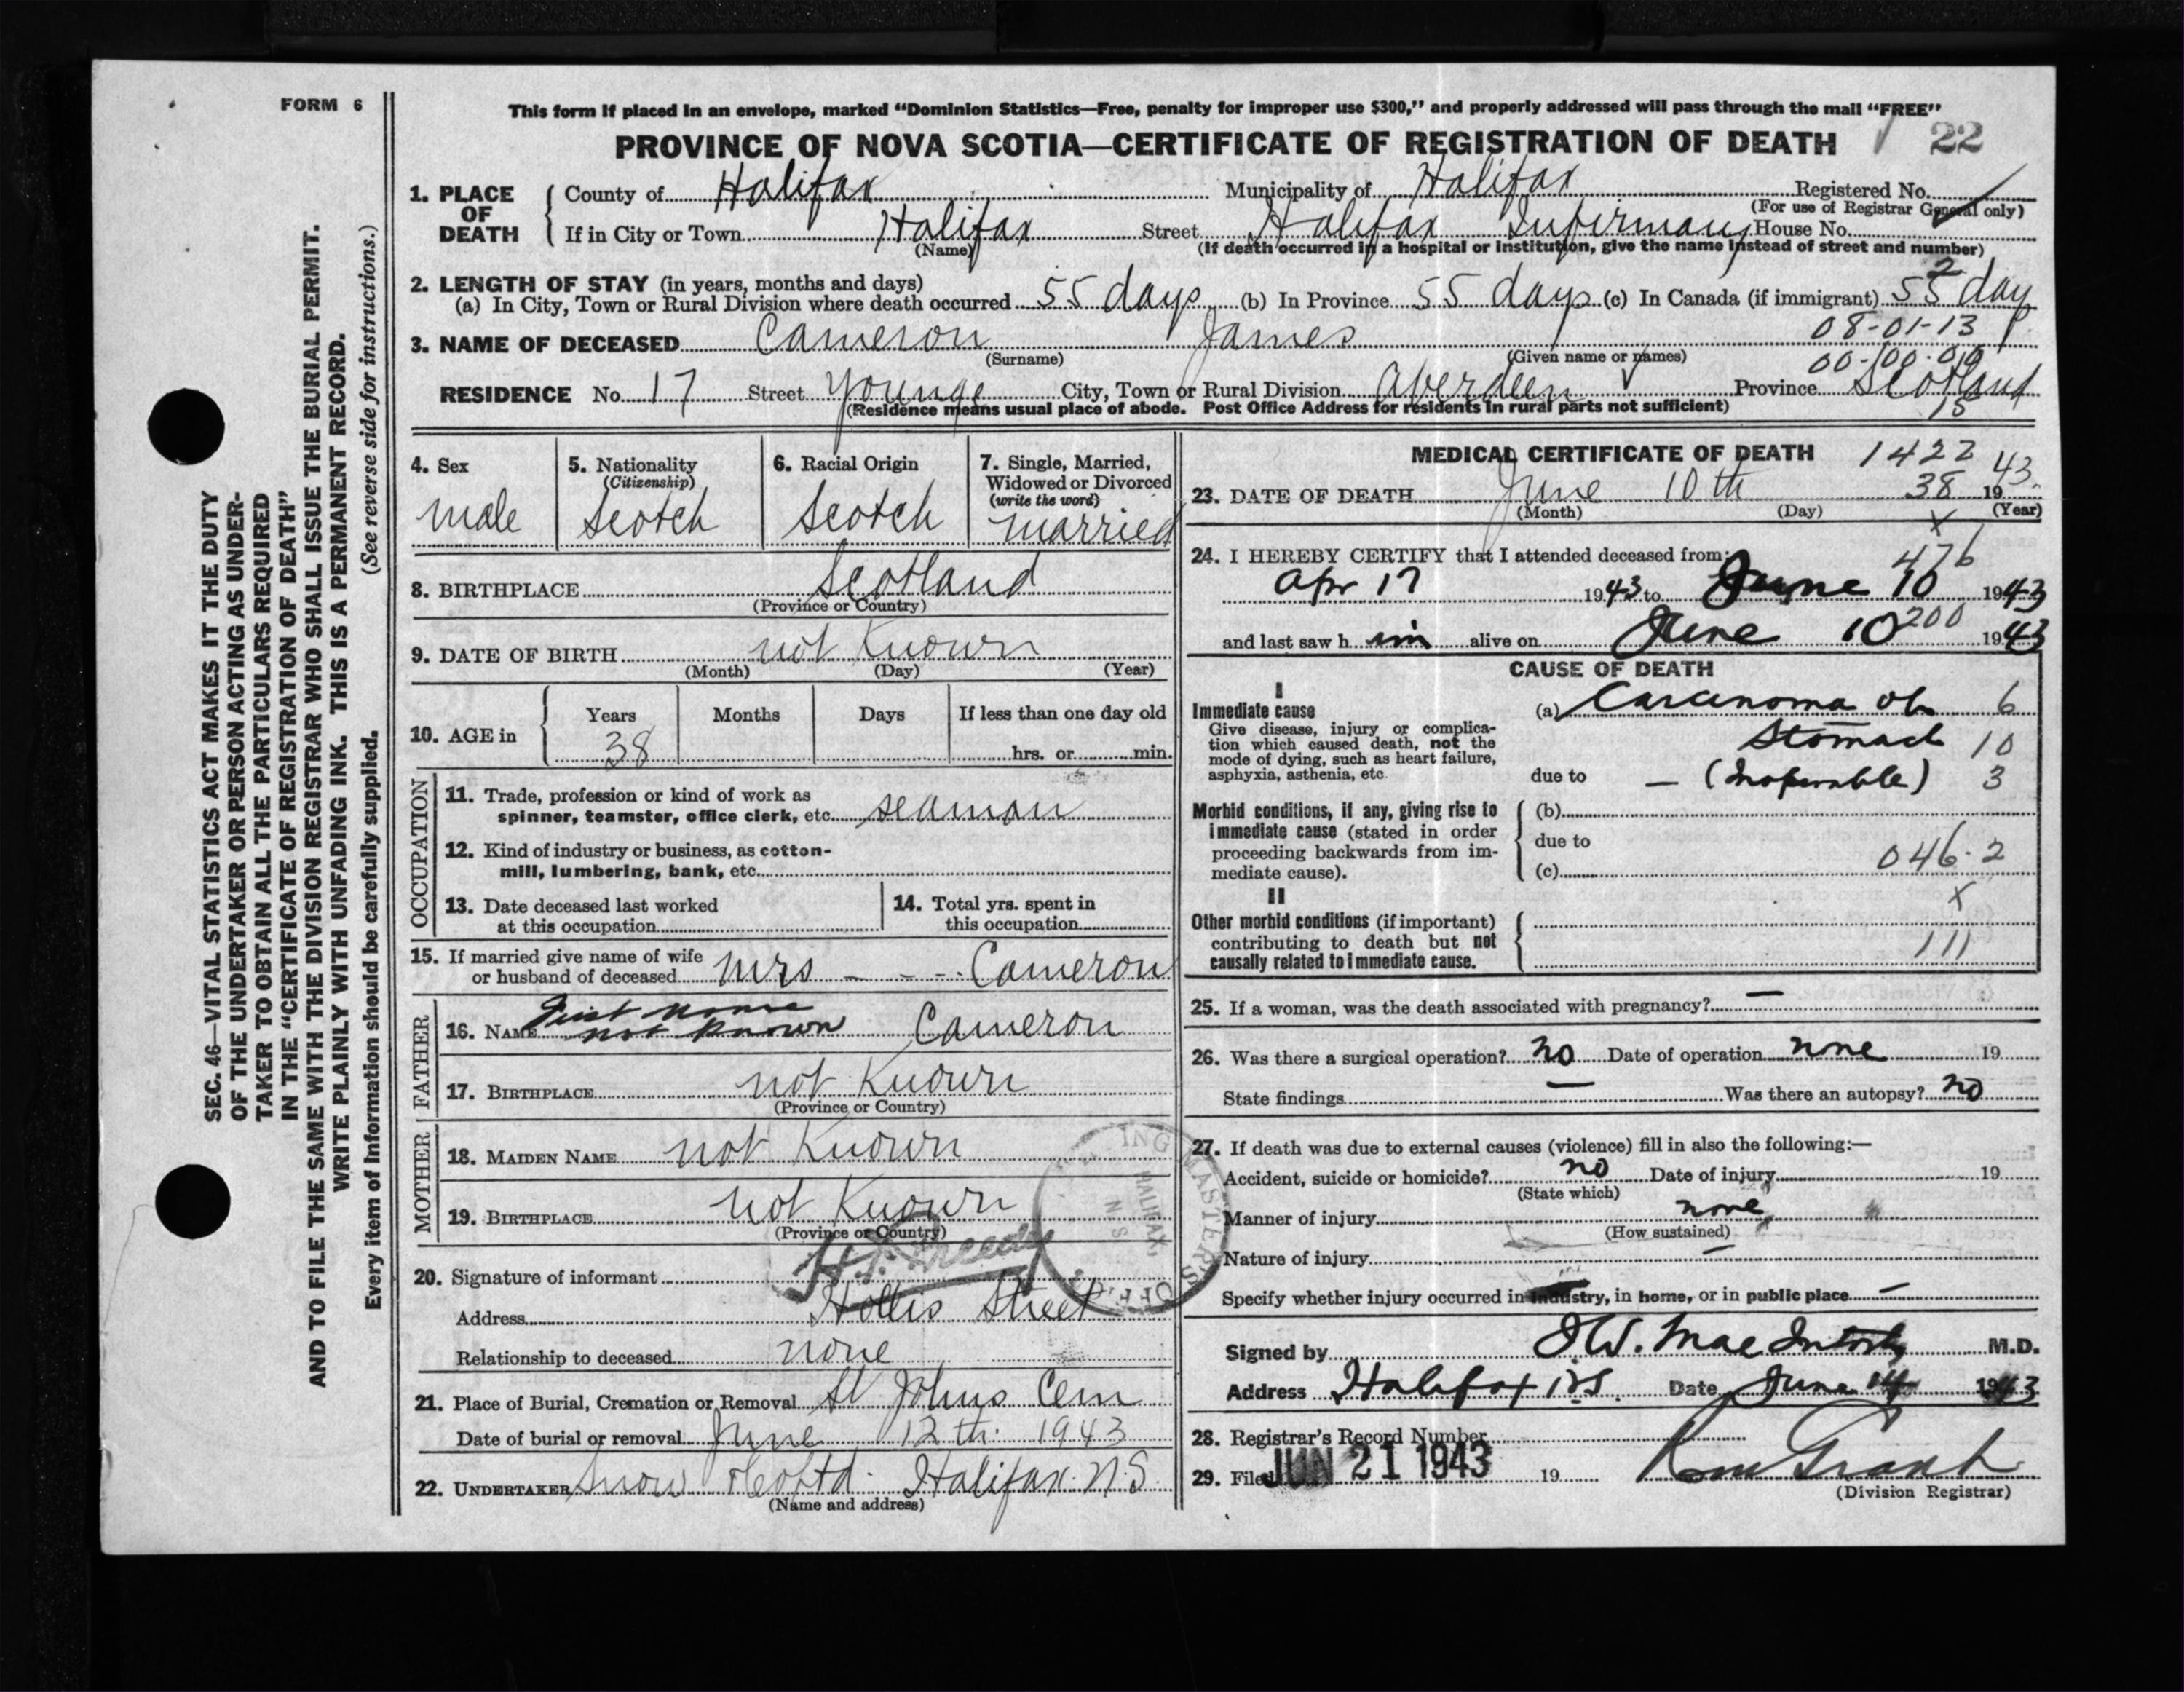 FORM 6
SEC. 46—VITAL STATISTICS ACT MAKES IT THE DUTY
OF THE UNDERTAKER OR PERSON ACTING AS UNDER-
TAKER TO OBTAIN ALL THE PARTICULARS REQUIRED
IN THE "CERTIFICATE OF REGISTRATION OF DEATH"
AND TO FILE THE SAME WITH THE DIVISION REGISTRAR WHO SHALL ISSUE THE BURIAL PERMIT.
WRITE PLAINLY WITH UNFADING INK. THIS IS A PERMANENT RECORD.
Every item of information should be carefully supplied. (See reverse side for instructions.)
This form if placed in an envelope, marked "Dominion Statistics—Free, penalty for improper use $300," and properly addressed will pass through the mail "FREE"
PROVINCE OF NOVA SCOTIA—CERTIFICATE OF REGISTRATION OF DEATH 22
1. PLACE OF DEATH
County of Halifax Municipality of Halifax Registered No.
(For use of Registrar General only)
If in City or Town Halifax Street Halifax Infirmary House No.
(Name) (If death occurred in a hospital or institution, give the name instead of street and number)
2. LENGTH OF STAY (in years, months and days)
(a) In City, Town or Rural Division where death occurred 55 days (b) In Province 55 days (c) In Canada (if immigrant) 55 days
2
08-01-13
3. NAME OF DECEASED Cameron James
(Surname) (Given name or names)
00-00-00
RESIDENCE No. 17 Street Younge City, Town or Rural Division Aberdeen Province Scotland
(Residence means usual place of abode. Post Office Address for residents in rural parts not sufficient) 15
4. Sex
male
5. Nationality
(Citizenship)
Scotch
6. Racial Origin
Scotch
7. Single, Married,
Widowed or Divorced
(write the word)
married
8. BIRTHPLACE Scotland
(Province or Country)
9. DATE OF BIRTH not Known
(Month) (Day) (Year)
10. AGE in
Years Months Days If less than one day old
38 hrs. or min.
OCCUPATION
11. Trade, profession or kind of work as
spinner, teamster, office clerk, etc. seaman
12. Kind of industry or business, as cotton-
mill, lumbering, bank, etc.
13. Date deceased last worked
at this occupation
14. Total yrs. spent in
this occupation
15. If married give name of wife
or husband of deceased Mrs - - - Cameron
FATHER
16. NAME First name not known Cameron
17. BIRTHPLACE not Known
(Province or Country)
MOTHER
18. MAIDEN NAME not Known
19. BIRTHPLACE not Known
(Province or Country)
20. Signature of informant
Address Hollis Street
Relationship to deceased none
ING MASTER'S OFF
HALIFAX,
N S
21. Place of Burial, Cremation or Removal St Johns Cem
Date of burial or removal June 12th. 1943
22. UNDERTAKER Snow & Co Ltd. Halifax. N.S
(Name and address)
MEDICAL CERTIFICATE OF DEATH 1422
38
23. DATE OF DEATH June 10th 1943.
(Month) (Day) (Year)
x
24. I HEREBY CERTIFY that I attended deceased from:
476
Apr 17 1943 to June 10 1943
200
and last saw him alive on June 10 1943
CAUSE OF DEATH
I
Immediate cause
Give disease, injury or complica-
tion which caused death, not the
mode of dying, such as heart failure,
asphyxia, asthenia, etc.
(a) Carcinoma of 6
Stomach 10
due to — (Inoperable) 3
Morbid conditions, if any, giving rise to
immediate cause (stated in order
proceeding backwards from im-
mediate cause).
(b)
due to
(c) 046.2
x
II
Other morbid conditions (if important)
contributing to death but not
causally related to immediate cause.
111
25. If a woman, was the death associated with pregnancy? —
26. Was there a surgical operation? no Date of operation none 19
State findings — Was there an autopsy? no
27. If death was due to external causes (violence) fill in also the following:—
Accident, suicide or homicide? no Date of injury 19
(State which)
Manner of injury none
(How sustained)
Nature of injury —
Specify whether injury occurred in industry, in home, or in public place —
Signed by J W. MacIntosh M.D.
Address Halifax N.S. Date June 14 1943
28. Registrar's Record Number
29. Filed JUN 21 1943 19
(Division Registrar)